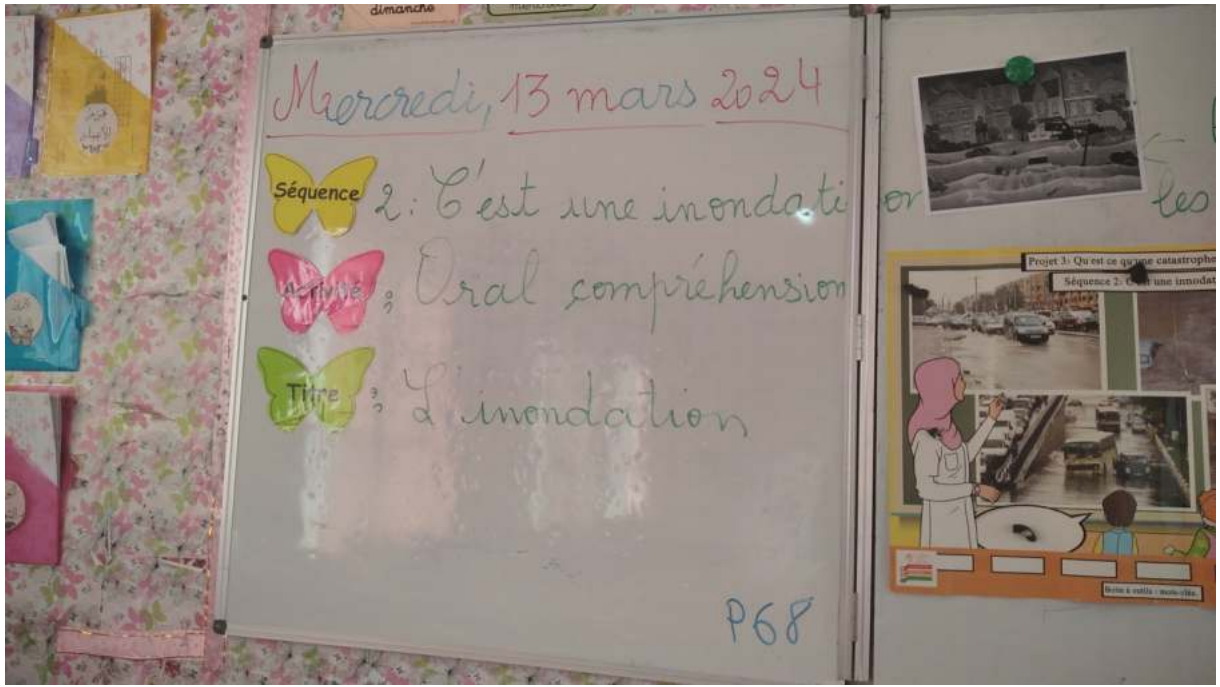 dimanche
Mercredi, 13 mars 2024
Séquence 2: C'est une inondation
les
Activité : Oral compréhension
Titre : L'inondation
P68
Projet 3: Qu est ce qu'une catastrophe
Séquence 2: C'est une innodat
Boite à outils : mots-clés.